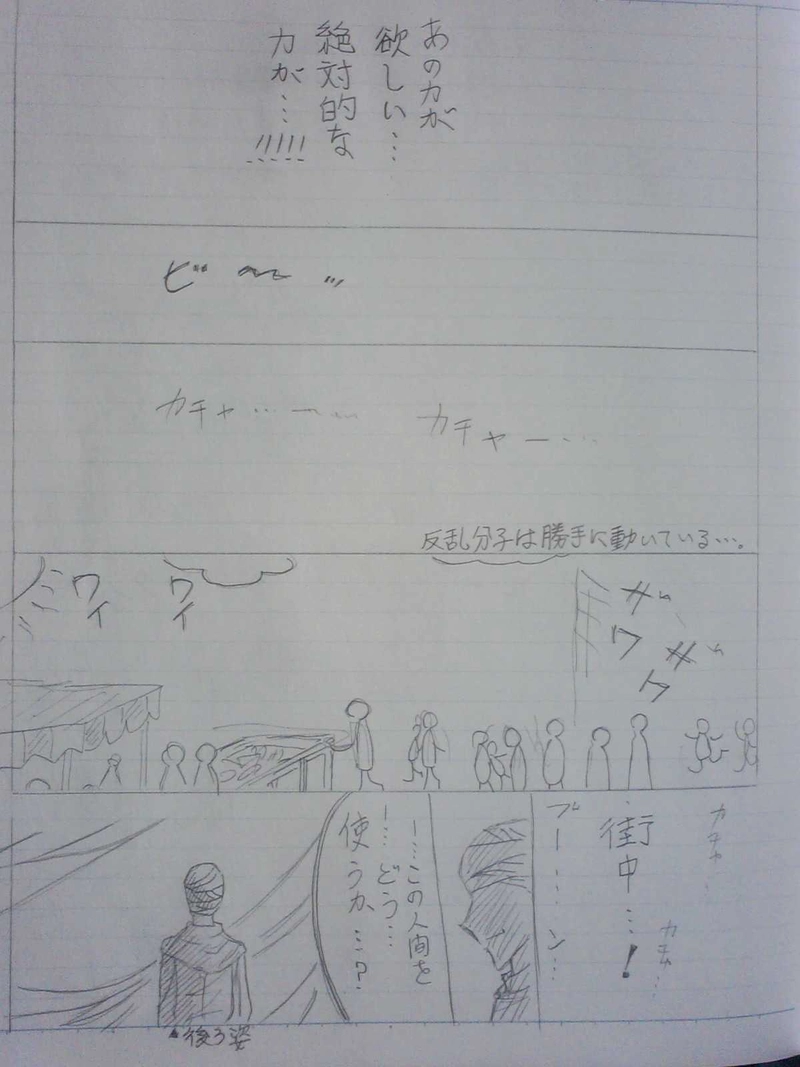 あの力が
欲しい…
絶対的な
力が…!!!!!
ビー〜…
カチャー…
カチャ…ー〜
反乱分子は勝手に動いている…。
ザワ
ザワ
ワイ
ワイ
カチャ…
カチャ…
街中…!
ブー……ン…
ー…この人間を
ー…どう…
使うか…?
後ろ姿